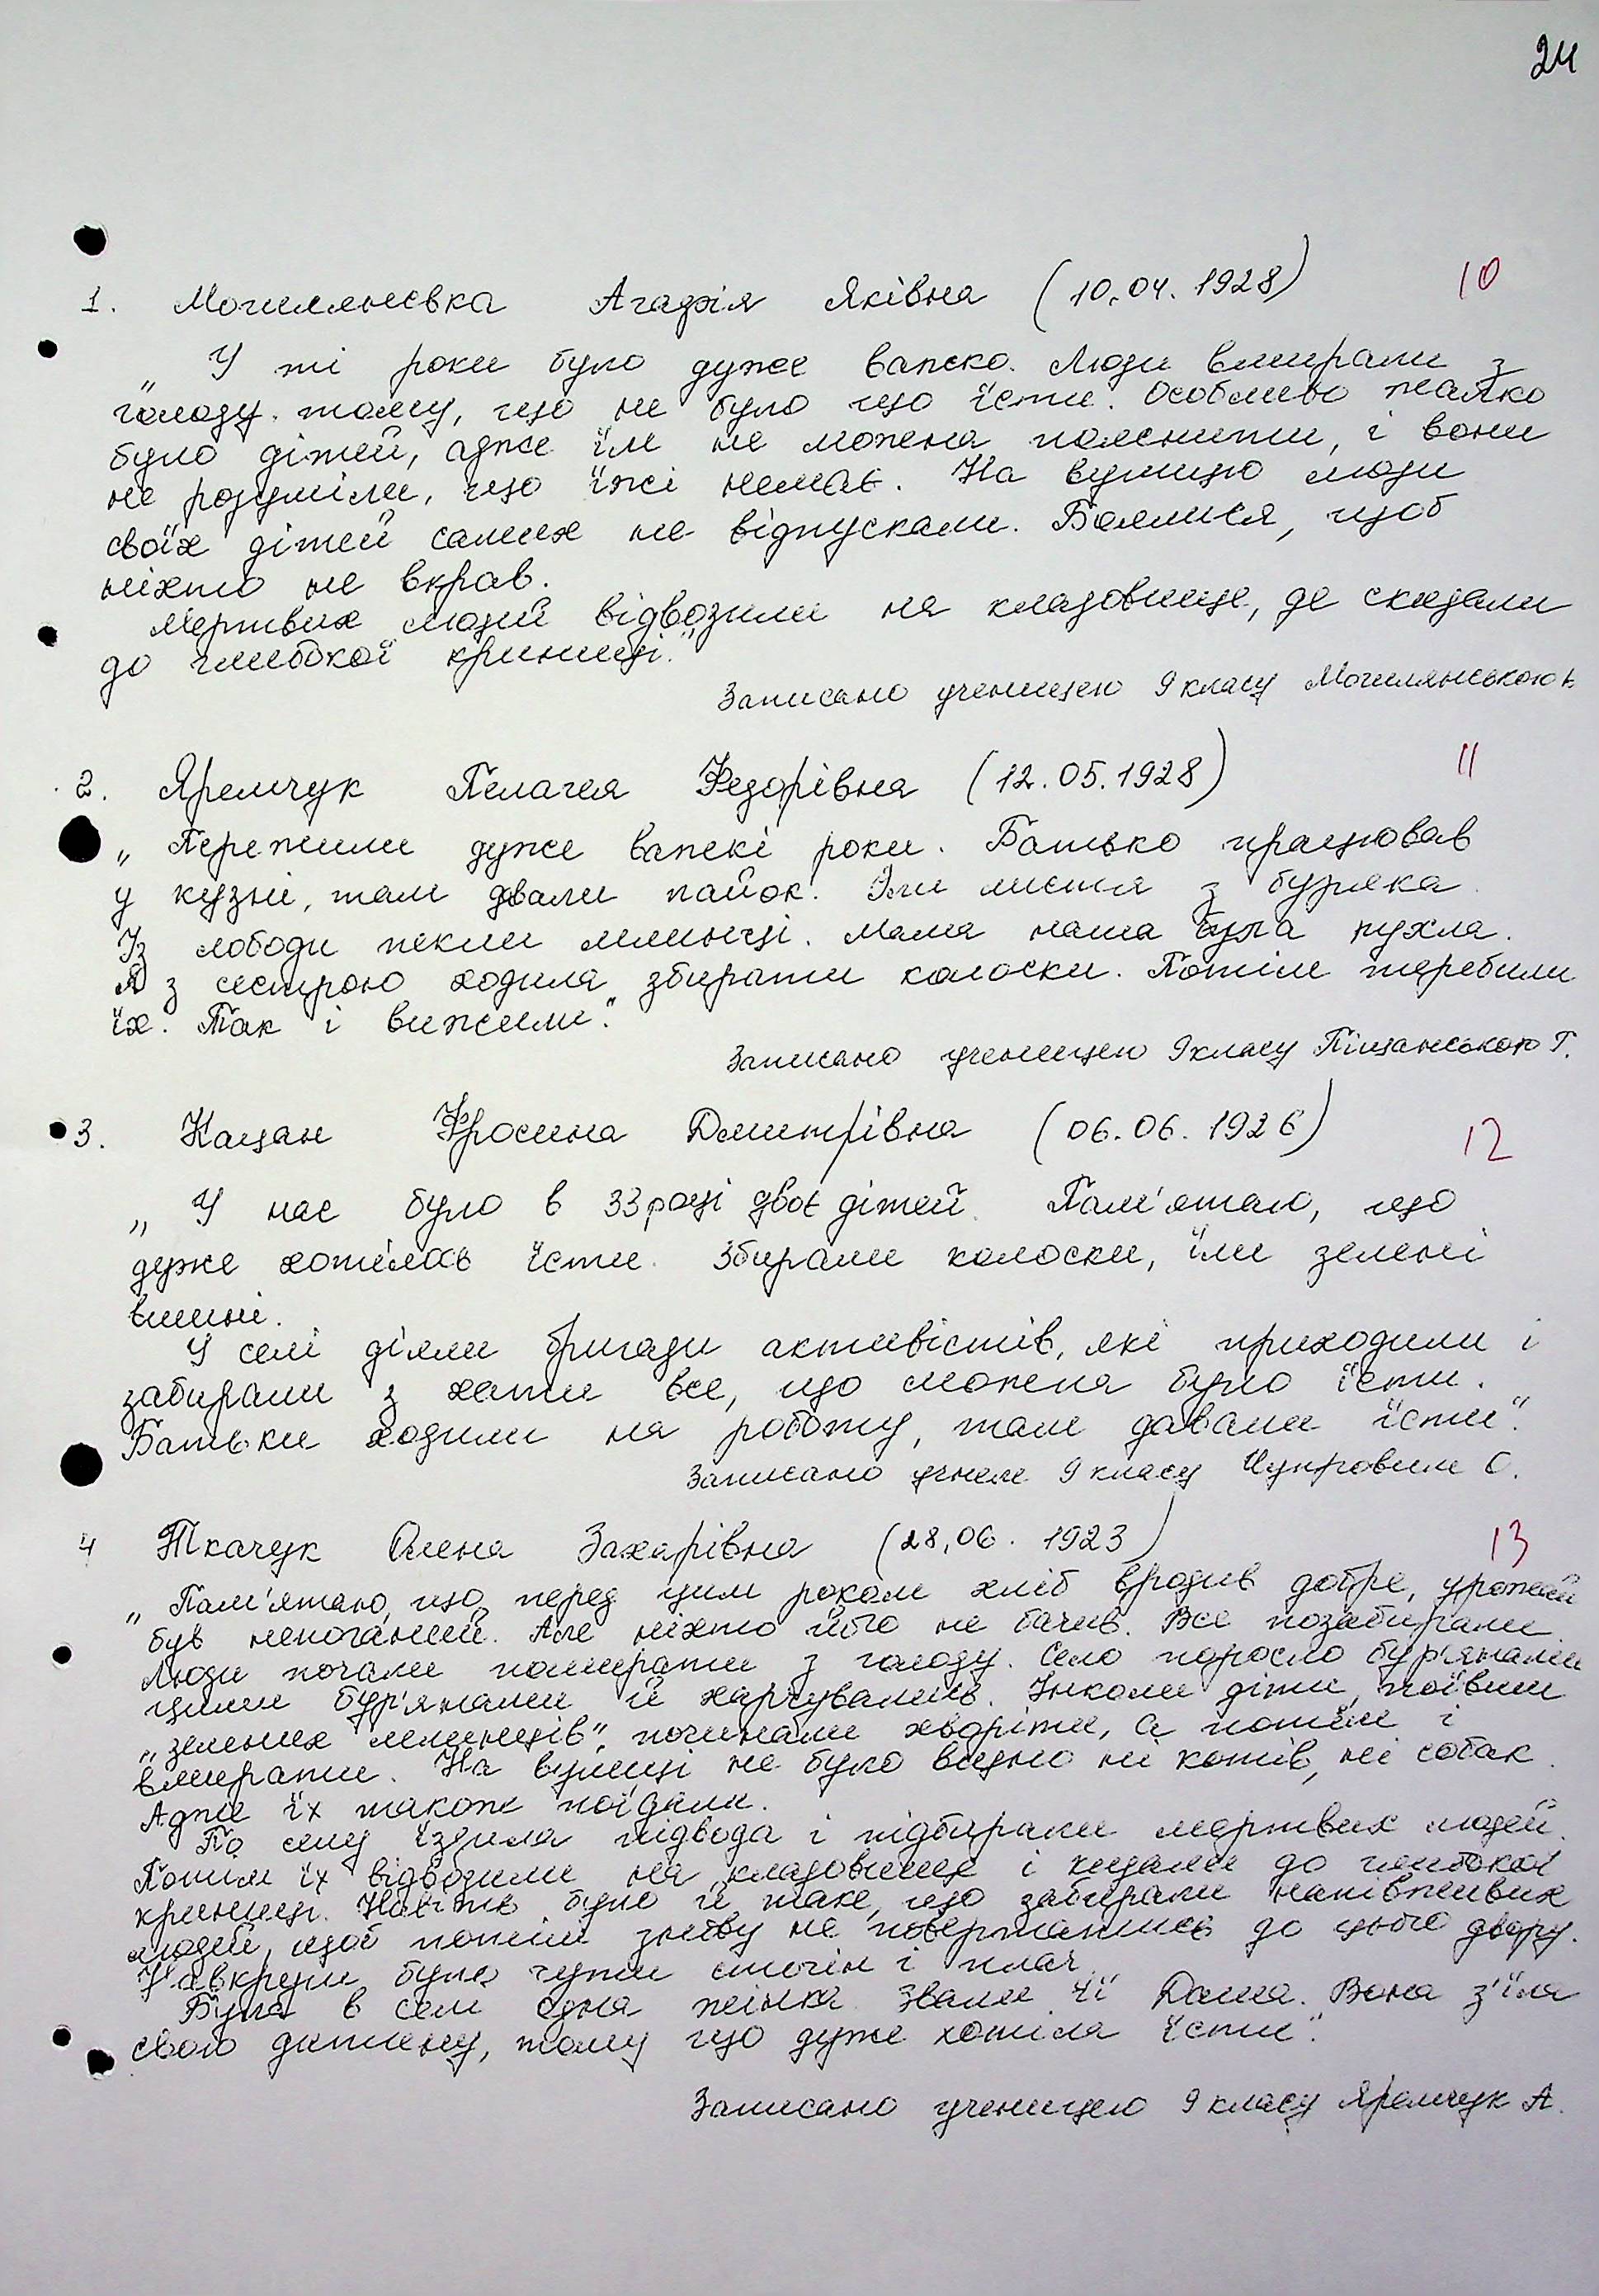 24
1. Могилянська Агафія Яківна (10.04.1928) 10
„У ті роки було дуже важко. Люди вмирали з
голоду. тому, що не було що їсти. Особливо жалко
було дітей, адже їм не можна пояснити, і вони
не розуміли, що їжі немає. На вулицю люди
своїх дітей самих не відпускали. Боялися, щоб
ніхто не вкрав.
Мертвих людей відвозили на кладовище, де скидали
до глибокої криниці."
Записано ученицею 9 класу Могилянською
2. Яремчук Пелагея Федорівна (12.05.1928) 11
„Пережили дуже важкі роки. Батько працював
у кузні, там давали пайок. Їли листя з буряка.
Із лободи пекли млинці. Мама наша була пухла.
Я з сестрою ходила збирати колоски. Потім теребили
їх. Так і вижили."
Записано ученицею 9 класу Піщанською Т.
3. Кацан Фросина Дмитрівна (06.06.1926) 12
„У нас було в 33 році двоє дітей. Пам'ятаю, що
дуже хотілось їсти. Збирали колоски, їли зелені
вишні.
У селі діяли бригади активістів, які приходили і
забирали з хати все, що можна було їсти.
Батьки ходили на роботу, там давали їсти".
Записано учнем 9 класу Чупровим С.
4 Ткачук Олена Захарівна (28.06.1923) 13
„Пам'ятаю, що перед цим роком хліб вродив добре, урожай
був непоганий. Але ніхто його не бачив. Все позабирали.
Люди почали помирати з голоду. Село поросло бур'янами
цими бур'янами й харчувались. Інколи діти, поївши
„зелених млинців", починали хворіти, а потім і
вмирати. На вулиці не було видно ні котів, ні собак.
Адже їх також поїдали.
По селу їздила підвода і підбирали мертвих людей.
Потім їх відвозили на кладовище і кидали до глибокої
криниці. Навіть було й таке, що забирали напівживих
людей, щоб потім знову не повертатись до цього двору.
Навкруги було чути стогін і плач.
Була в селі одна жінка. Звали її Даша. Вона з'їла
свою дитину, тому що дуже хотіла їсти".
Записано ученицею 9 класу Яремчук А.